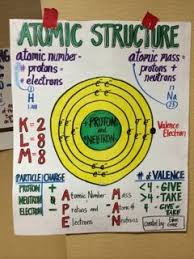 ATOMIC STRUCTURE
atomic number =
# protons
electrons
atomic mass =
protons +
neutrons
1
H
K=2
L=8
M=8
PROTON
and
NEUTRON
Valence
Electron
PARTICLE CHARGE
PROTON +
NEUTRON
ELECTRON -
A Atomic Number
P Protons and
E Electrons
M Mass
A Atomic #
N Neutrons
# of VALENCE
<4 - GIVE
>4 - TAKE
4 - GIVE
TAKE
created by: